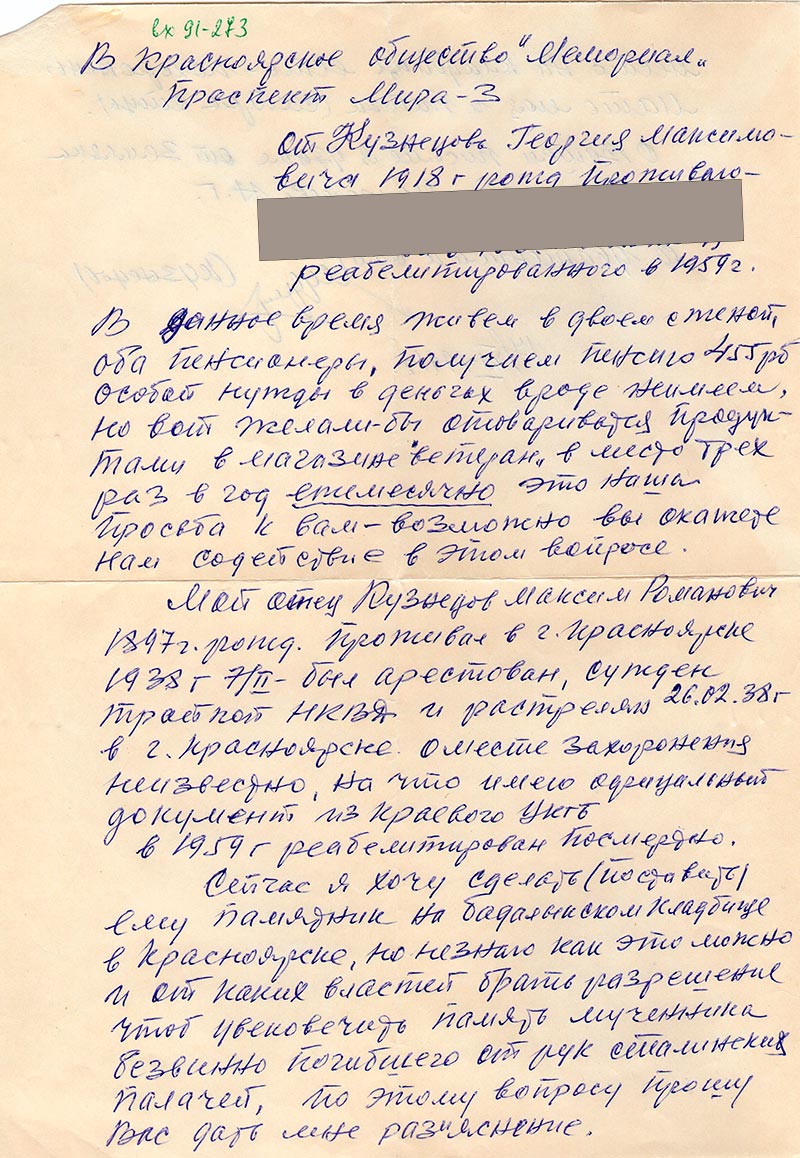 вх 91-273
В Красноярское общество "Мемориал"
Проспект Мира-3
от Кузнецова Георгия Максимо-
вича 1918 г рожд Проживаю-
реабелитированного в 1959 г.
В данное время живем в двоем с женой,
оба пенсионеры, получаем пенсию 455 рб
особой нужды в деньгах вроде неимеем,
но вот желали-бы отовариватся продук-
тами в магазине "ветеран" в место трех
раз в год ежемесячно это наша
просьба к вам-возможно вы окажете
нам содействие в этом вопросе.
Мой отец Кузнецов Максим Романович
1897 г. рожд. Проживал в г. Красноярске
1938 г 7/II- был арестован, сужден
тройкой НКВД и растрелян 26.02.38 г
в г. Красноярске. о месте захоронения
неизвестно, на что имею официальный
документ из Краевого УКГБ
в 1959 г реабелитирован посмертно.
Сейчас я хочу сделать (поставить)
ему памядник на бадалыкском кладбище
в Красноярске, но незнаю как это можно
и от каких властей брать разрешение
чтоб увековечить память мученника
безвинно погибшего от рук сталинских
палачей, по этому вопросу прошу
Вас дать мне разъяснение.